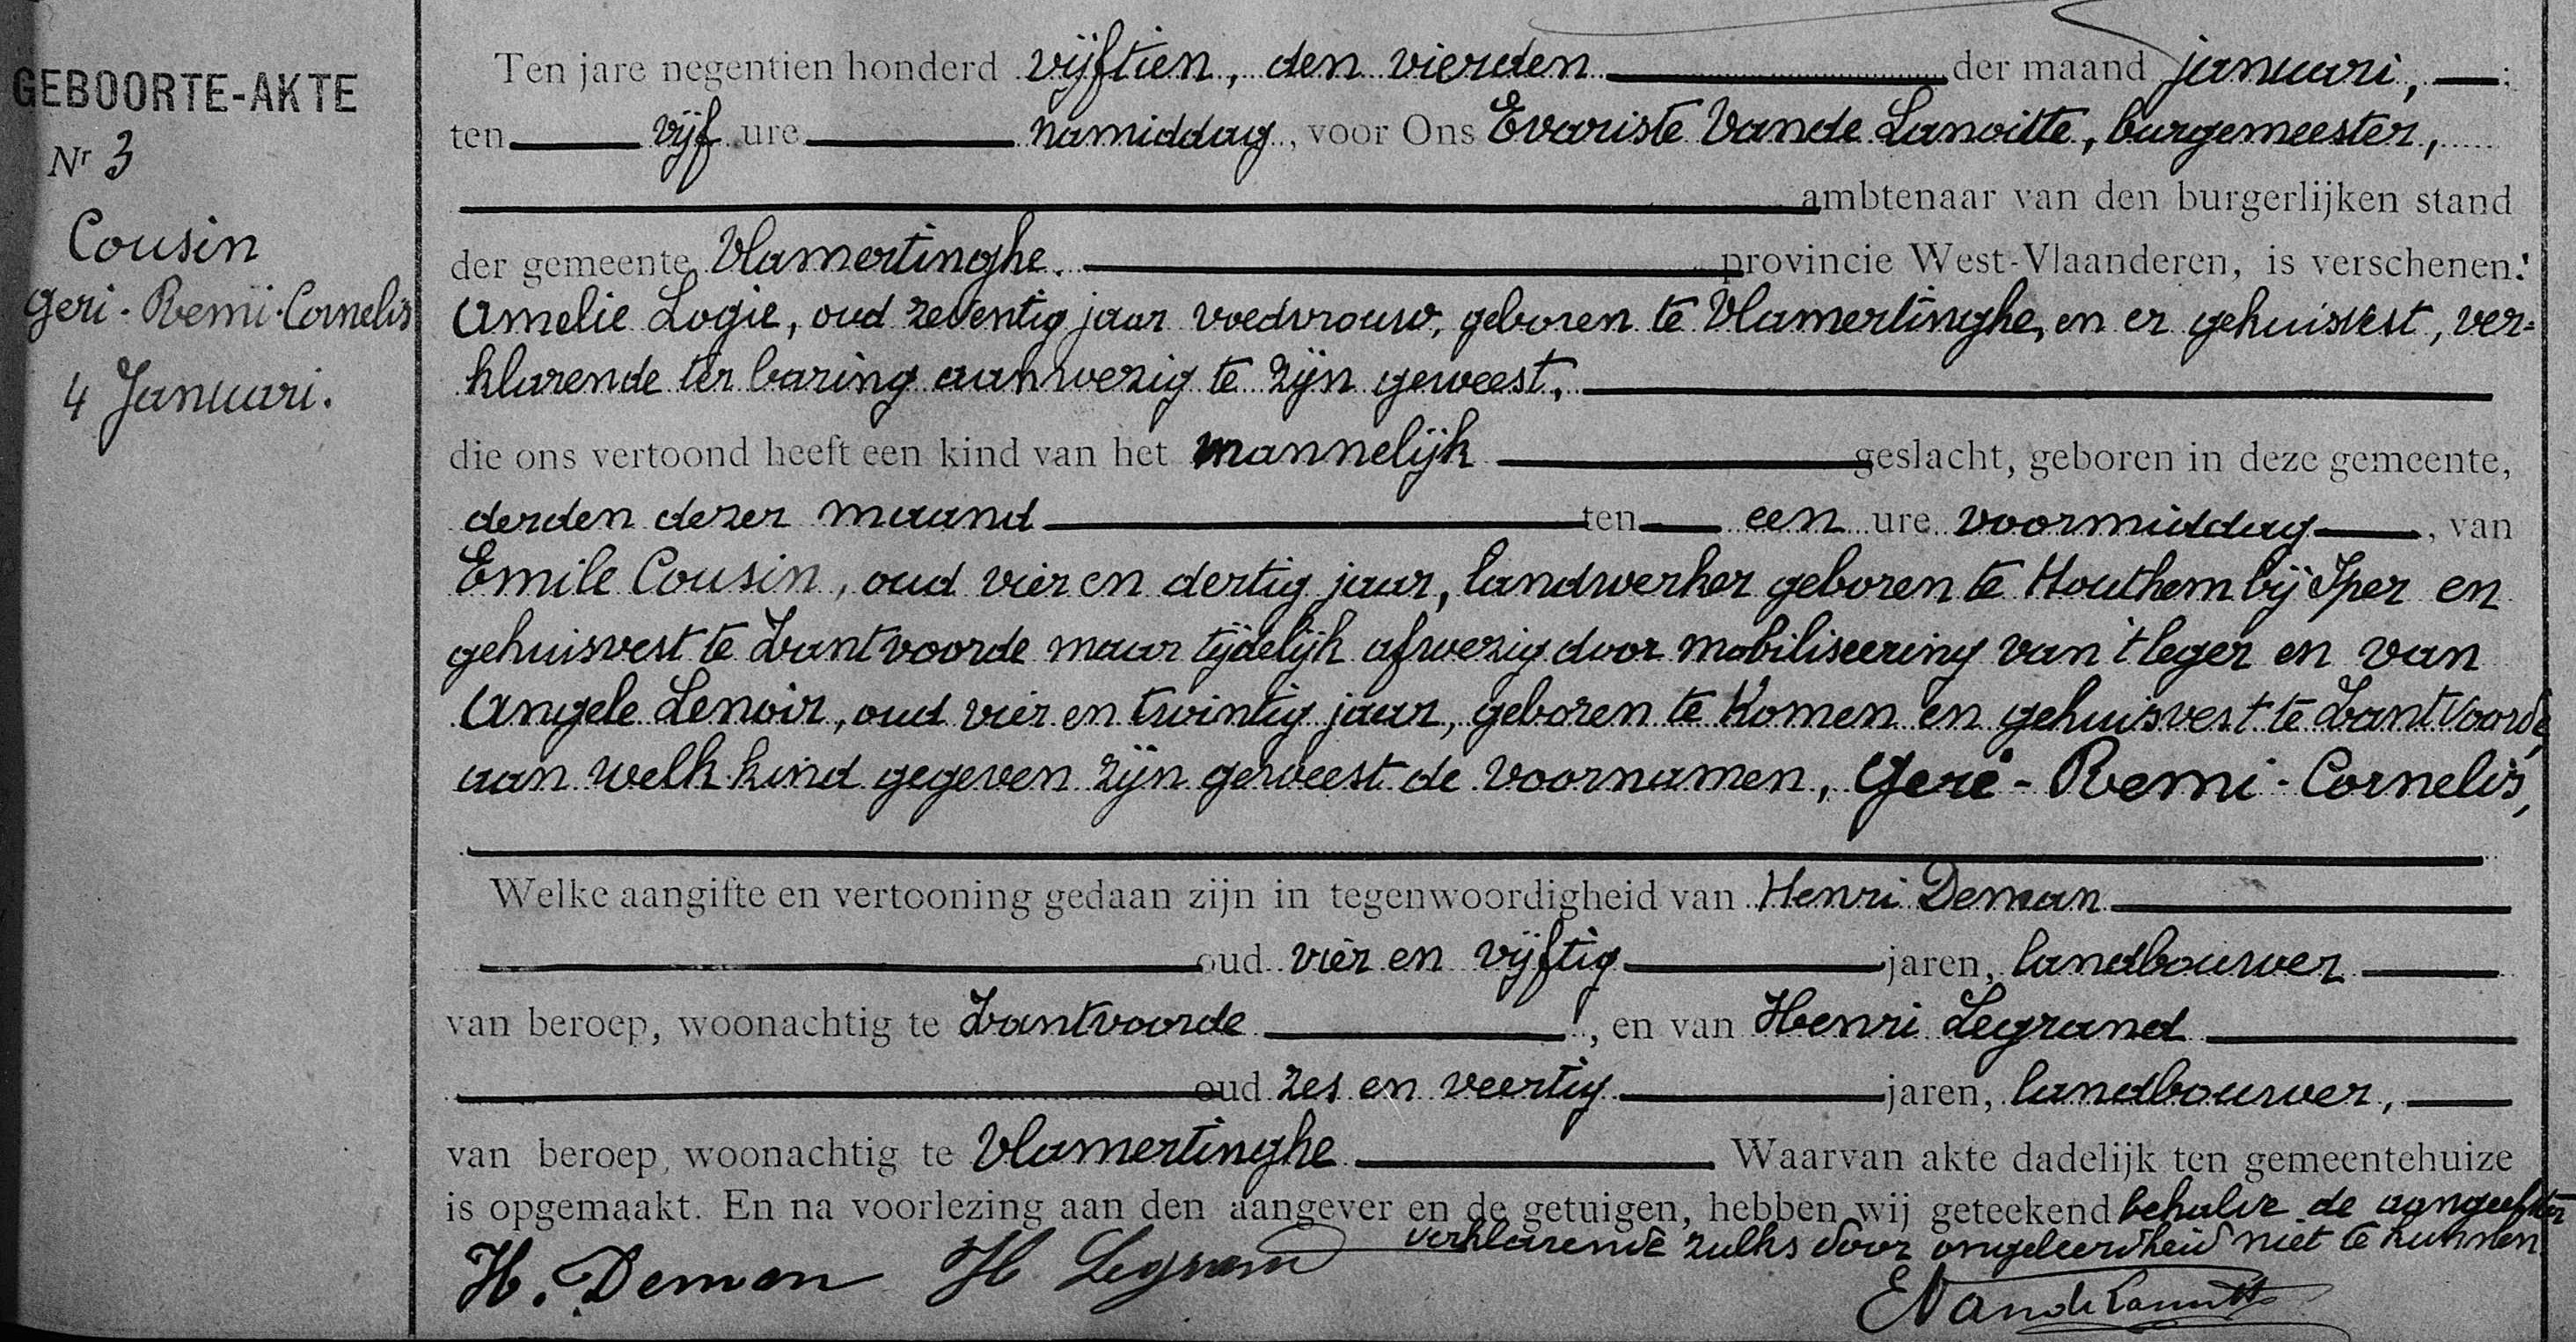 GEBOORTE-AKTE
Nr 3
Cousin
Geri-Remi-Cornelis
4 Januari.
Ten jare negentien honderd vijftien, den vierden der maand januari,
ten vijf ure namiddag, voor Ons Evariste Vande Lanoitte, burgemeester,
ambtenaar van den burgerlijken stand
der gemeente Vlamertinghe. provincie West-Vlaanderen, is verschenen:
Amelie Logie, oud zeventig jaar voedvrouw, geboren te Vlamertinghe, en er gehuisvest, ver=
klarende ter baring aanwezig te zijn geweest,
die ons vertoond heeft een kind van het mannelijk geslacht, geboren in deze gemeente,
derden dezer maand ten een ure voormiddag, van
Emile Cousin, oud vier en dertig jaar, landwerker geboren te Houthem bij Iper en
gehuisvest te Zantvoorde maar tijdelijk afwezig door mobiliseering van 't leger en van
Angele Lenoir, oud vier en twintig jaar, geboren te Komen en gehuisvest te Zantvoorde,
aan welk kind gegeven zijn geweest de voornamen, Geri-Remi-Cornelis,
Welke aangifte en vertooning gedaan zijn in tegenwoordigheid van Henri Deman
oud vier en vijftig jaren, landbouwer
van beroep, woonachtig te Zantvoorde, en van Henri Legrand
oud zes en veertig jaren, landbouwer,
van beroep, woonachtig te Vlamertinghe Waarvan akte dadelijk ten gemeentehuize
is opgemaakt. En na voorlezing aan den aangever en de getuigen, hebben wij geteekend behalve de aangeefster
verklarende zulks door ongeleerdheid niet te kunnen
H. Deman H Legrand
E Vande Lanoitte